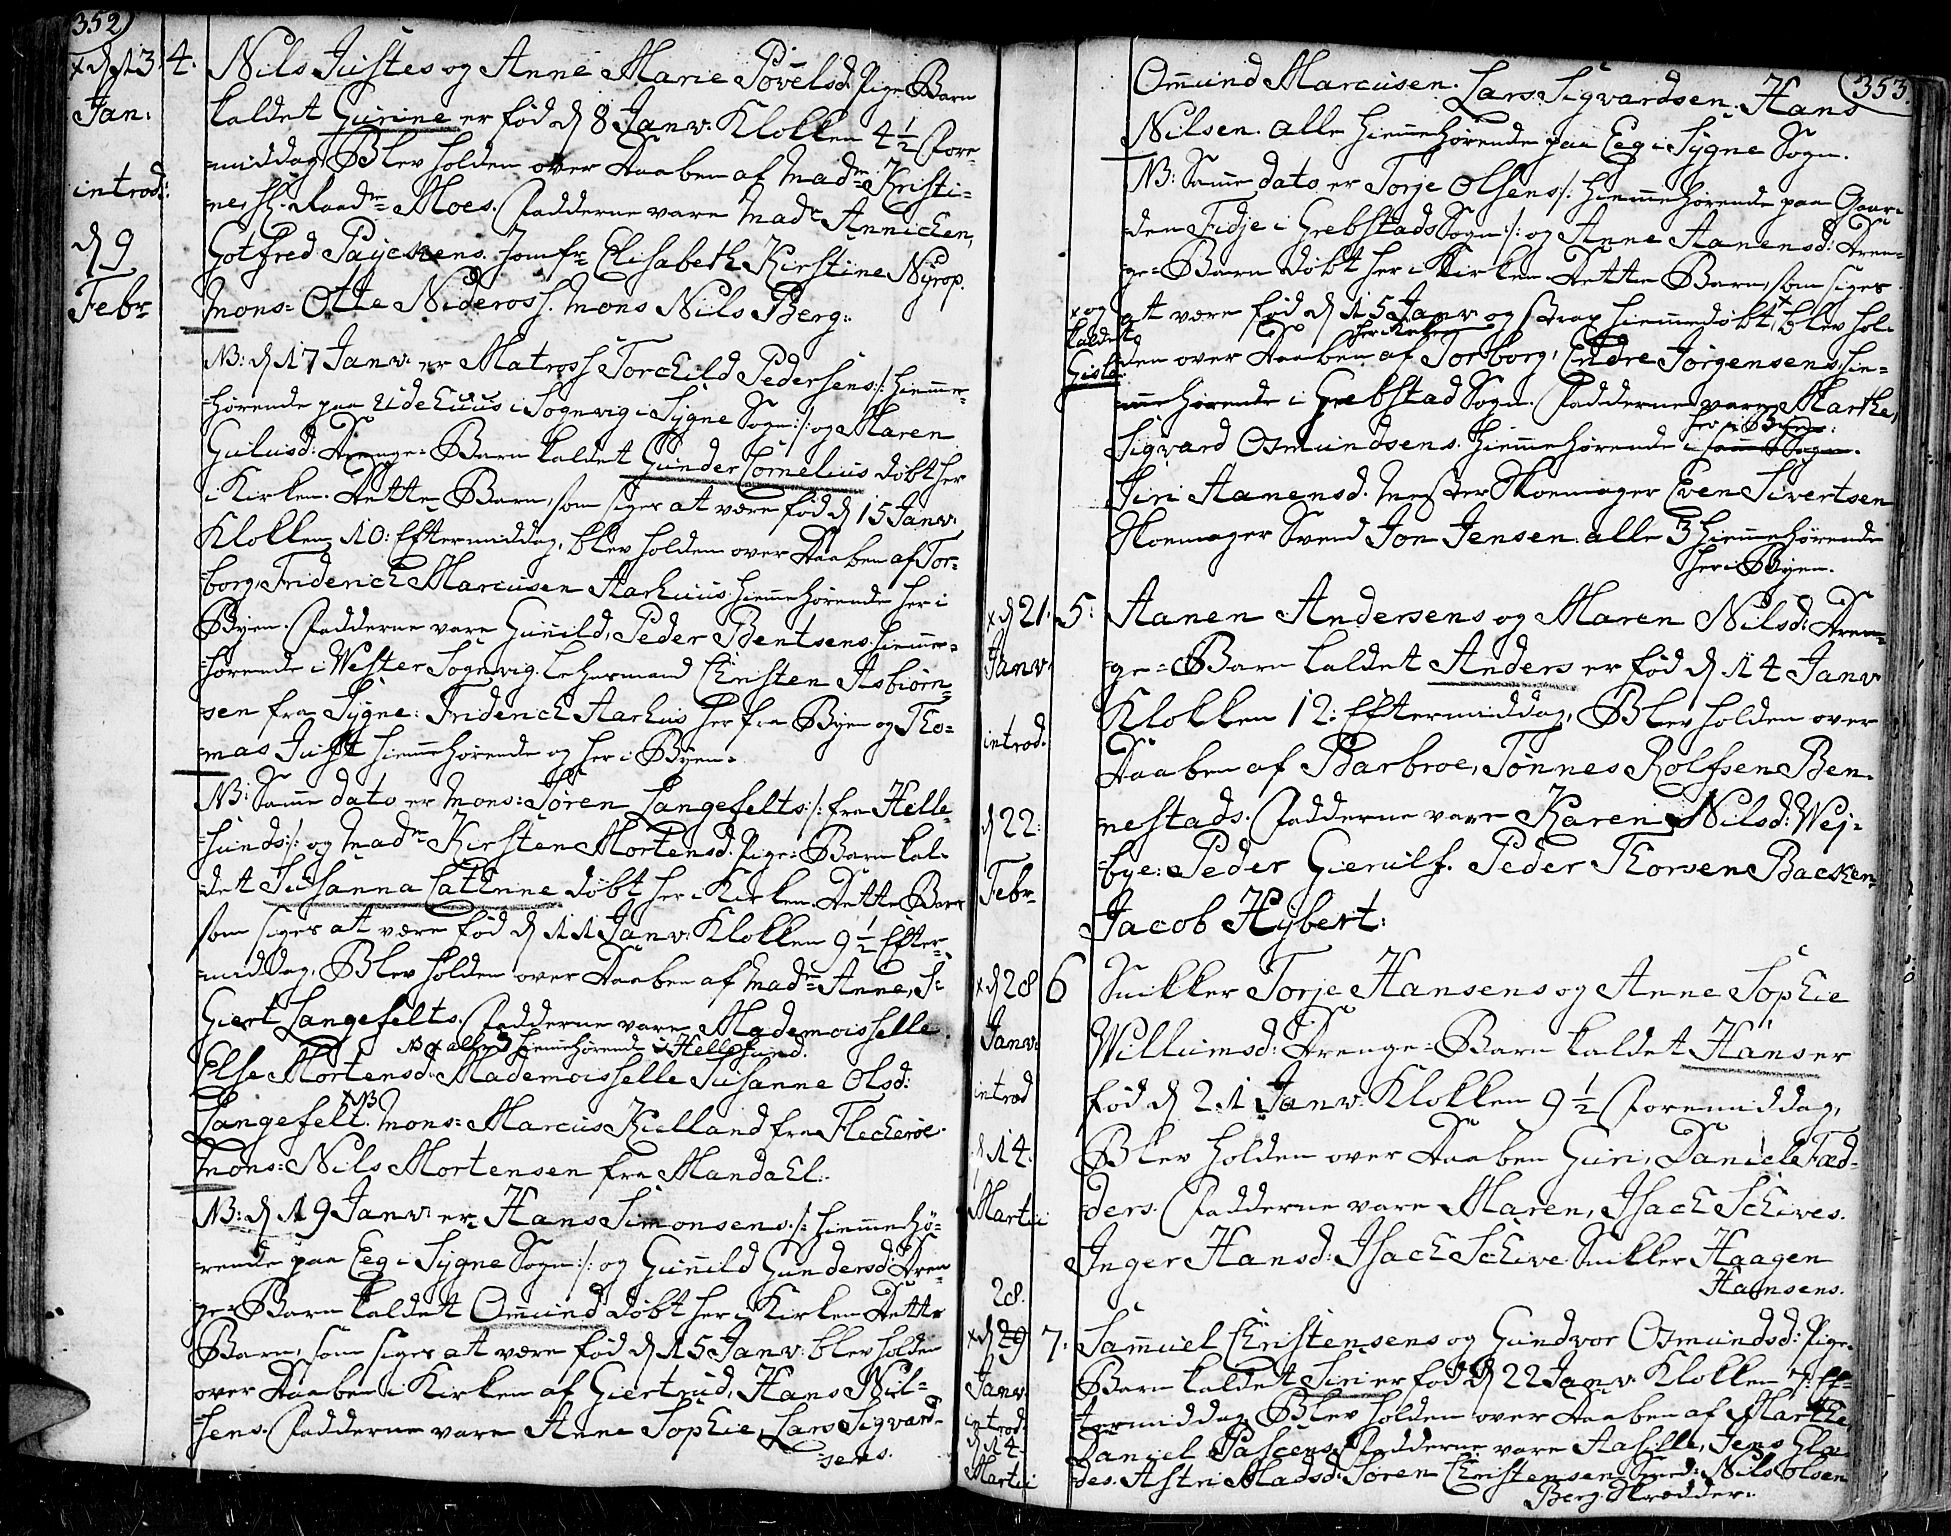 352
x d 13 4.
Jan.
introd:
d 9
Febr
Nils Justes og Anne Marie Povelsd: Pige-Barn
kaldet Gurine er fød d 8 Janv: Klokken 4 1/2 Fore-
middag, Blev holden over Daaben af Mad.m Kristi-
ne, Moes. Fadderne vare Mad.e Annichen,
Gotfred Paÿckens. Jomfr Elisabeth Kirstine Nÿrop.
Mons= Otte Mons Nils Berg:
NB: d 17 Janv: er Matross Torchild Pedersens /: hiemme-
hørende paa i Sognvig i Sÿgne Sogn :/ og Maren
Gulusd: Drenge-Barn kaldet Gunder Cornelius døbt her
i Kirken. Dette Barn, som siges at være fød d 15 Janv:
Klokken 10: Eftermiddag, blev holden over Daaben af Tor-
borg, Friderich Marcusen Aarhuus hiemmehørende her i
Bÿen. Fadderne vare Gunild, Peder Bentsens hiemme-
hørende i Wester Sognvig. Lehnsmand Christen Asbiørn-
sen fra Sÿgne: Friderich Aarhus her fra Bÿen og Tho-
mas Just hiemmehørende og her i Bÿen.
NB: Samme dato er Mons: Søren Langefelts /: fra Helle-
sunds :/ og Mad.m Kirsten Mortensd: Pige-Barn kal-
det Susanna Cathrine døbt her i Kirken. Dette Barn
som siges at være fød d 11 Janv: Klokken 9 1/2 Efter-
middag, Blev holden over Daaben af Mad.m Anne, S:
Giert Langefelts. Fadderne vare Mademoisselle
NB x alle 3 hiemmehørende i Hellesund.
Else Mortensd: Mademoisselle Susanne Olsd:
Langefelt. xNB Mons: Marcus Kielland fra Fleckerøe.
Mons: Nils Mortensen fra Mandahl.
NB: d 19 Janv: er Hans Simonsens /: hiemmehø-
rende paa Eeg i Sÿgne Sogn :/ og Gunild Gundersd: Dren-
ge-Barn kaldet Omund døbt her i Kirken. Dette
Barn, som siges at være fød d 15 Janv: blev holden
over Daaben i Kirken af Giertrud, Hans Nil-
sens. Fadderne vare Anne Sophie, Lars Sigvard-
sens.
353.
Omund Marcusen. Lars Sigvardsen. Hans
Nilsen. alle hiemmehørende paa Eeg i Sÿgne Sogn.
NB: Samme dato er Torje Olsens /: hiemmehørende paa Gaar-
den Fidje i Grebstad Sogn :/ og Anne Aanensd: Dren-
ge-Barn døbt her i Kirken. Dette Barn, som siges
at være fød d 15 Janv: og strax hiemmedøbt x, blev hol-
x og
kaldet
Gisle.
her i Kirken
den over Daaben af Torborg, Endre Jørgensens hie-
mmehørende i Grebstad Sogn. Fadderne vare Marthe,
her i Bÿen:
Sigvard Osmundsens. hiemmehørende i samme Sogn.
Siri Aanensd. Mester Skoemager Even Sivertsen
Skoemager Svend Jon Jensen: alle 3 hiemmehørende
her i Bÿen.
x d 21. 5:
Janv
introd.
d 22.
Febr
Aanen Andersens og Maren Nilsd: Dren-
ge-Barn kaldet Anders er fød d 14 Janv
Klokken 12: Eftermiddag, Blev holden over
Daaben af Barbroe, Tønnes Rolfsen Ben-
nestads. Fadderne vare Karen Nilsd: Wej-
bye: Peder Gierulf. Peder Thorsen Backen
Jacob Hÿbert:
x d 28 6
Janv:
introd
d 14.
Martii
Snikker Torje Hansens og Anne Sophie
Willumsd: Drenge-Barn kaldet Hans er
fød d 21 Janv: Klokken 9 1/2 Formiddag,
Blev holden over Daaben Guri, Daniel Fæd-
ders. Fadderne vare Maren, Isach Schives.
Inger Hansd: Isach Schive. Snikker Haagen
Hansens.
28.
x d 29 7.
Janv.
introd.
d 14.
Martii
Samuel Christensens og Gundvor Osmundsd: Pige-
Barn kaldet Siri er fød d 22 Janv: Klokken 7: Ef-
termiddag, Blev holden over Daaben af Marthe,
Daniel Pascens. Fadderne vare Aasille, Jens Glo-
des. Astri Madsd: Søren Christensen Nils Olsen
Berg. Skrædder: